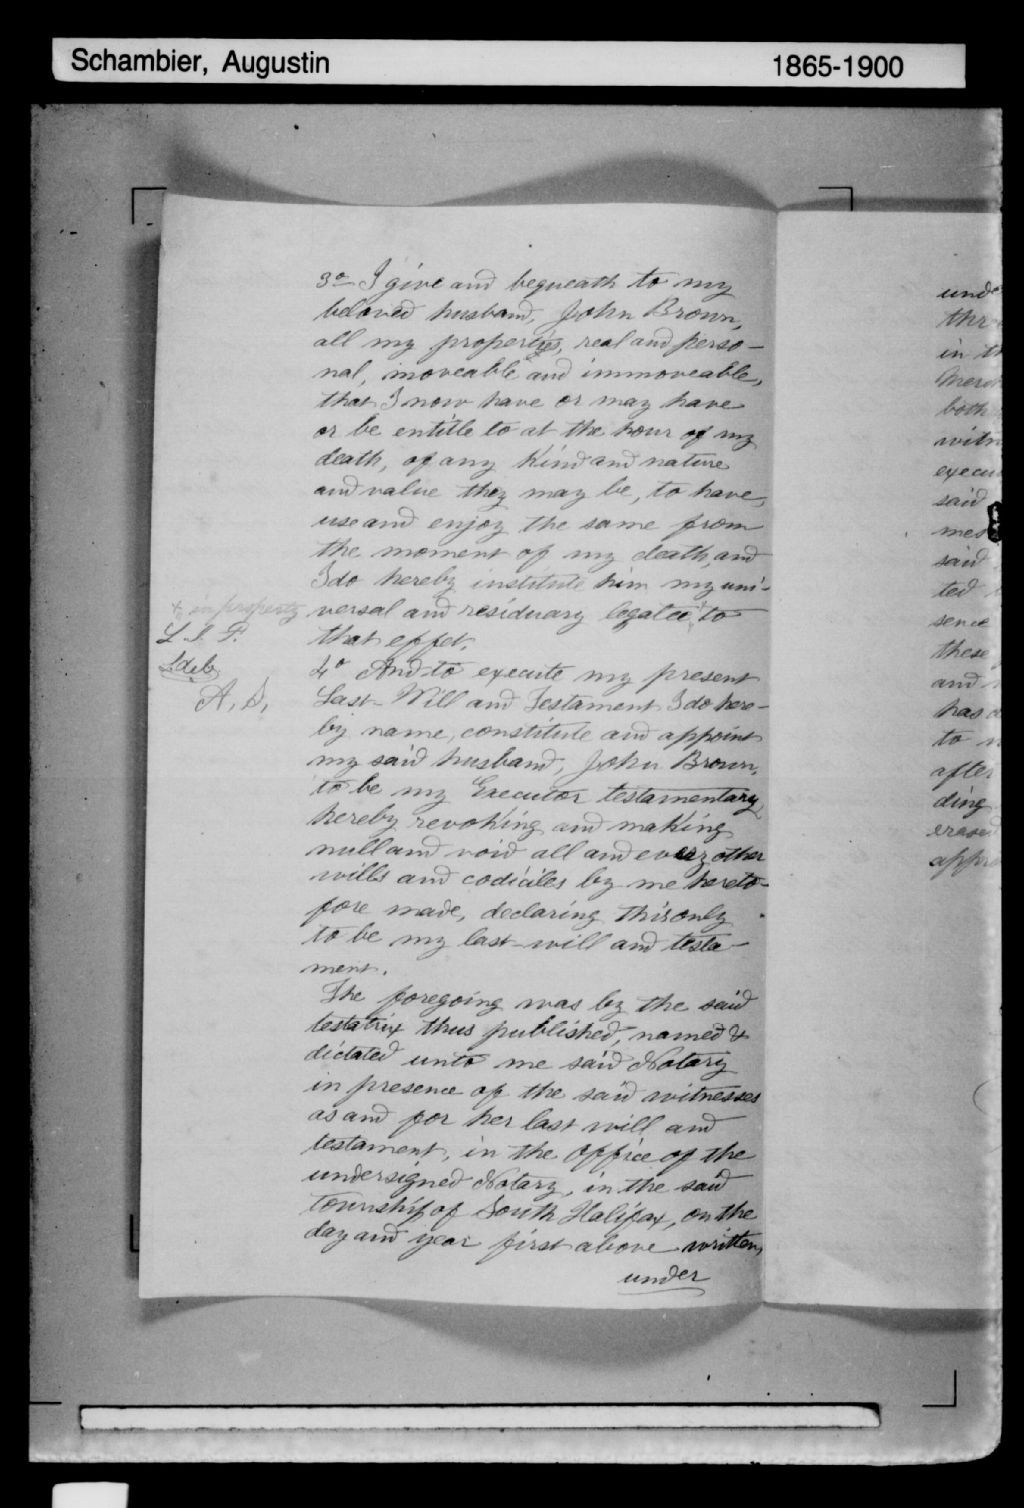 Schambier, Augustin 1865-1900
3o I give and bequeath to my
beloved husband, John Brown,
all my properties, real and perso-
nal, moveable and immoveable,
that I now have or may have
or be entitle to at the hour of my
death, of any kind and nature
and value they may be, to have,
use and enjoy the same from
the moment of my death, and
I do hereby institute him my uni-
+ in property
versal and residuary legatee + to
that effet.
A, S,
4o And to execute my present
Last Will and Testament I do here-
by name, constitute and appoint
my said husband, John Brown,
to be my Executor testamentary,
hereby revoking and making
null and void all and every other
wills and codiciles by me hereto-
fore made, declaring this only
to be my last will and testa-
ment.
The foregoing was by the said
testatrix thus published, named &
dictated unto me said Notary
in presence of the said witnesses
as and for her last will and
testament, in the office of the
undersigned Notary, in the said
township of South Halifax, on the
day and year first above written,
under
unde
thr
in th
Merch
both
witn
execu
said
mes
said
ted
sence
these
and
has
to
after
ding
erased
appro